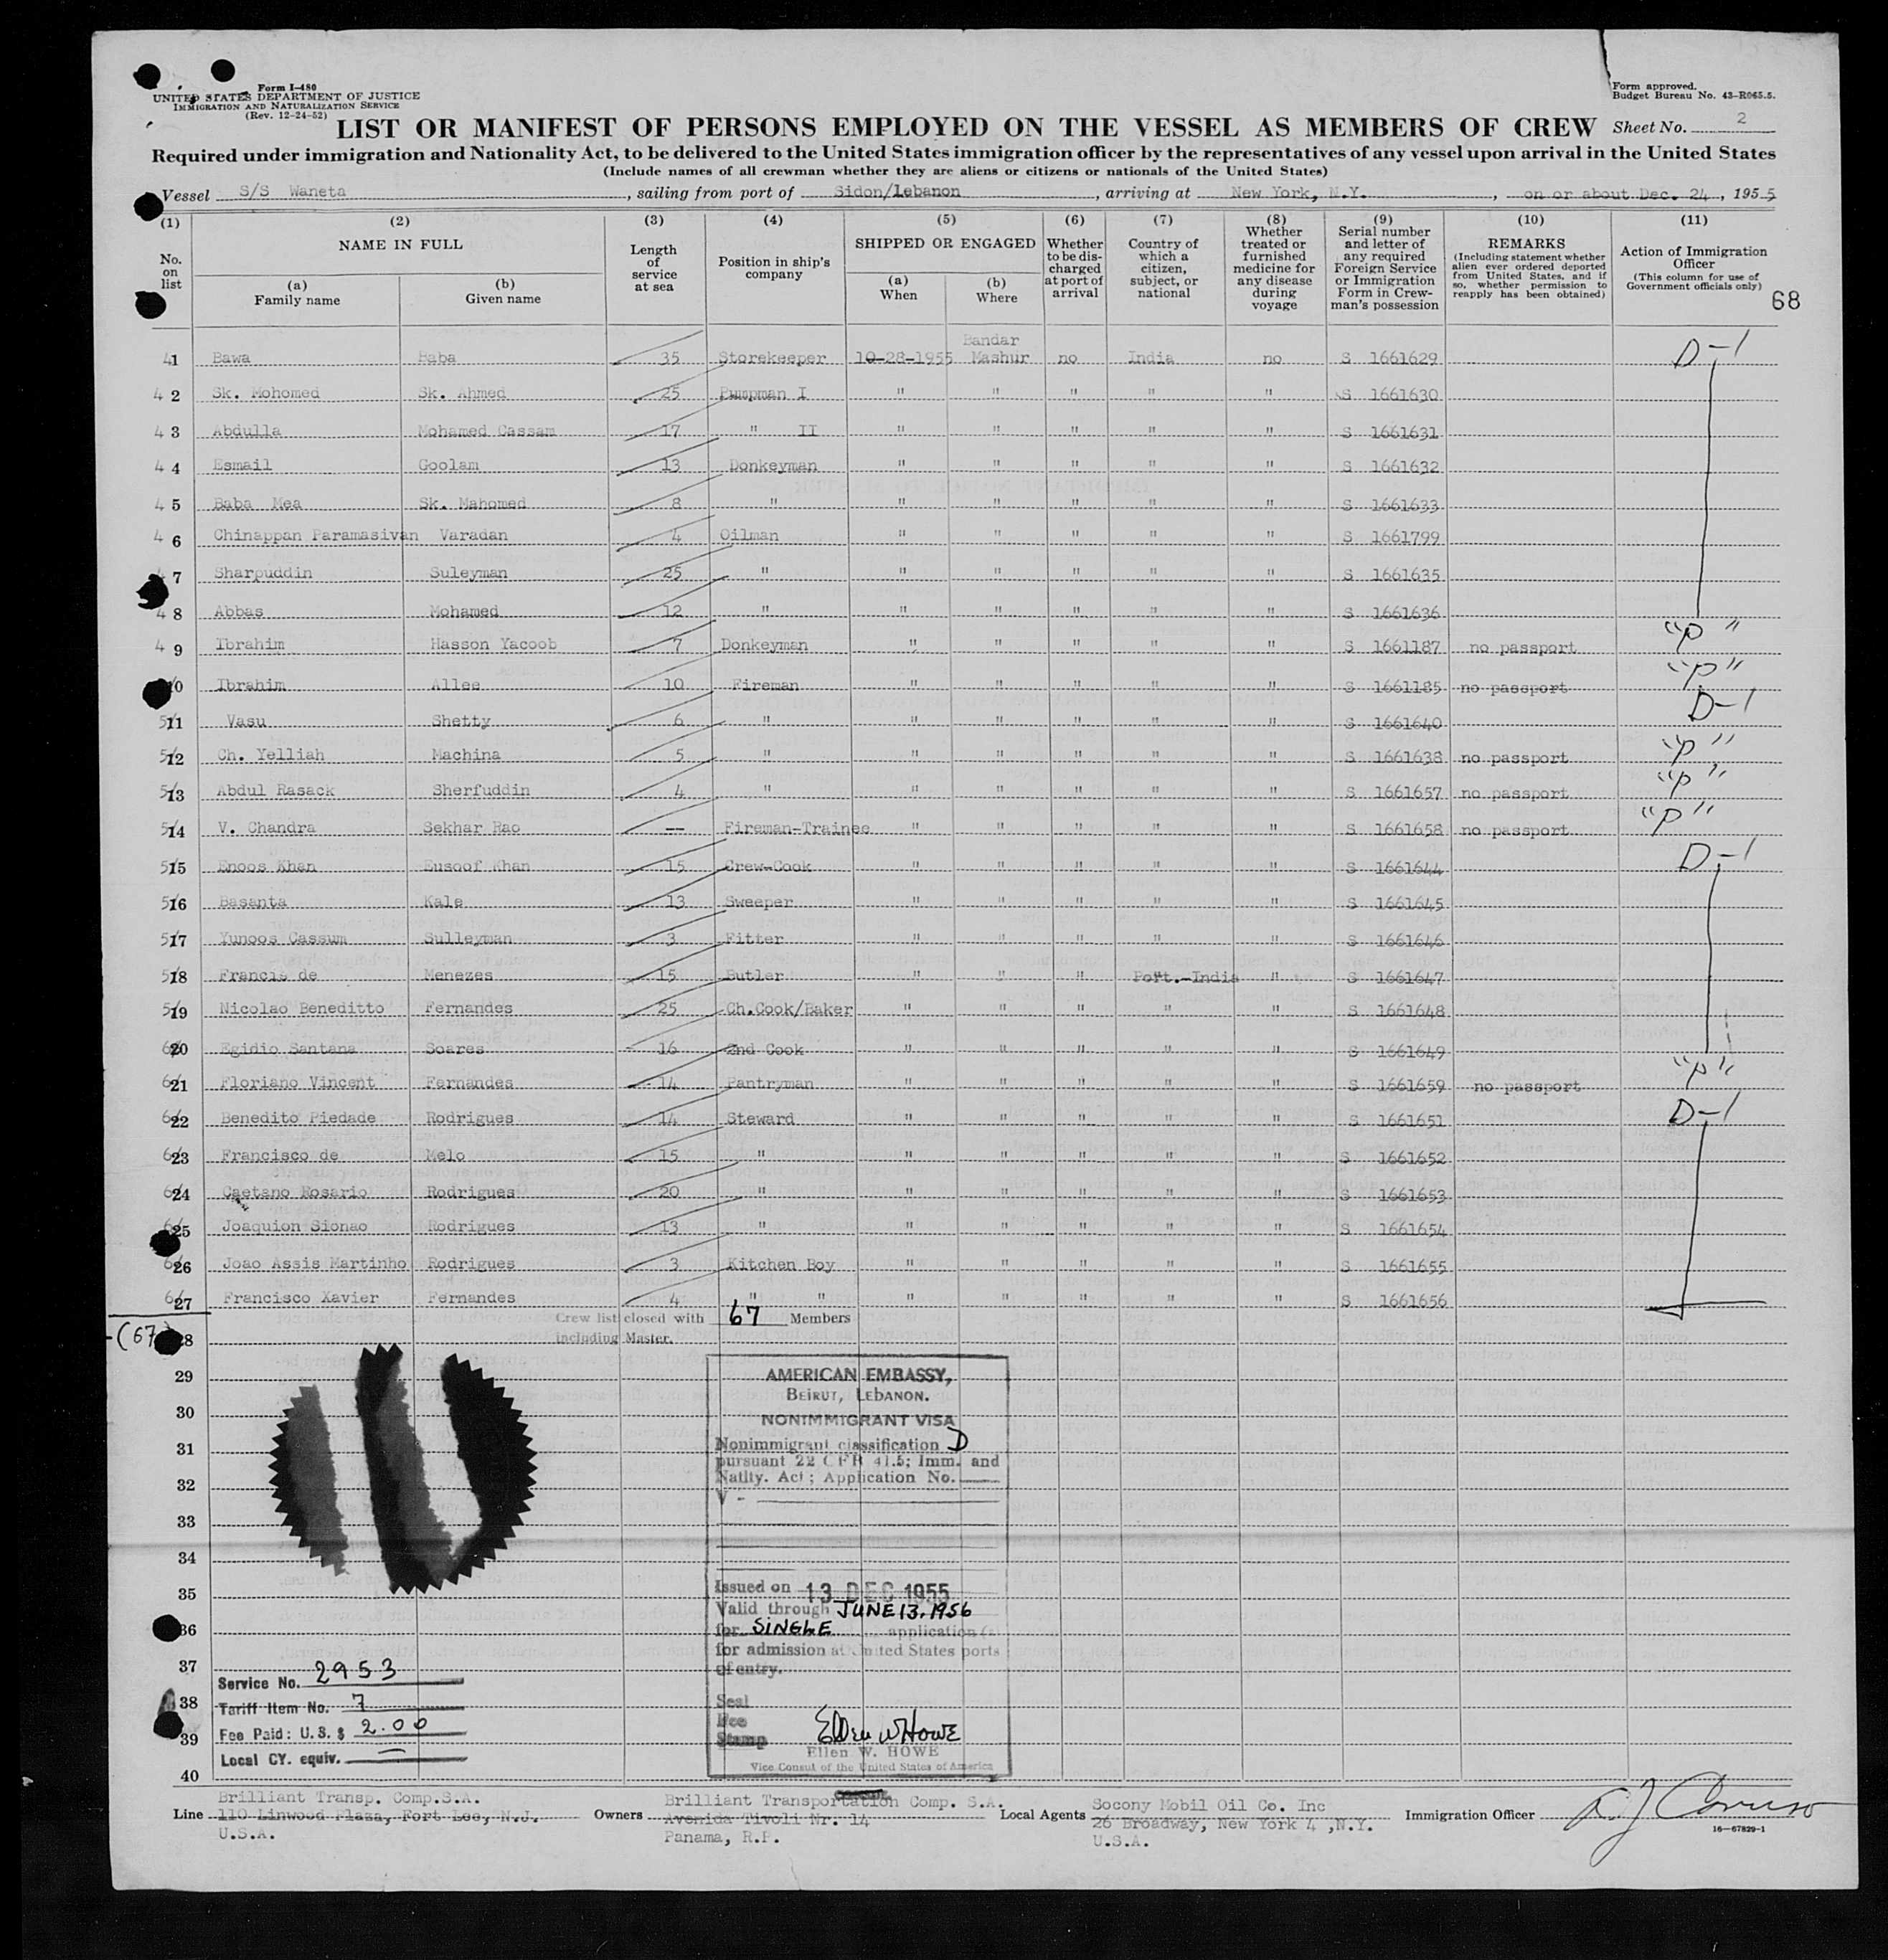 Form I-480
UNITED STATES DEPARTMENT OF JUSTICE
IMMIGRATION AND NATURALIZATION SERVICE
(Rev. 12-24-52)
Form approved.
Budget Bureau No. 43-R065.5.
LIST OR MANIFEST OF PERSONS EMPLOYED ON THE VESSEL AS MEMBERS OF CREW Sheet No. 2
Required under immigration and Nationality Act, to be delivered to the United States immigration officer by the representatives of any vessel upon arrival in the United States
(Include names of all crewman whether they are aliens or citizens or nationals of the United States)
Vessel S/S Waneta, sailing from port of Sidon/Lebanon, arriving at New York, N.Y., on or about Dec. 24, 1955
(1) No. on list
(2) NAME IN FULL (a) Family name (b) Given name
(3) Length of service at sea
(4) Position in ship's company
(5) SHIPPED OR ENGAGED (a) When (b) Where
(6) Whether to be discharged at port of arrival
(7) Country of which a citizen, subject, or national
(8) Whether treated or furnished medicine for any disease during voyage
(9) Serial number and letter of any required Foreign Service or Immigration Form in Crewman's possession
(10) REMARKS (Including statement whether alien ever ordered deported from United States, and if so, whether permission to reapply has been obtained)
(11) Action of Immigration Officer (This column for use of Government officials only)
68
41 Bawa Baba 35 Storekeeper 10-28-1955 Bandar Mashur no India no S 1661629 D-1
42 Sk. Mohomed Sk. Ahmed 25 Pumpman I " " " " " S 1661630
43 Abdulla Mohamed Cassam 17 " II " " " " " S 1661631
44 Esmail Goolam 13 Donkeyman " " " " " S 1661632
45 Baba Mea Sk. Mahomed 8 " " " " " " S 1661633
46 Chinappan Paramasivan Varadan 4 Oilman " " " " " S 1661799
7 Sharpuddin Suleyman 25 " " " " " " S 1661635
48 Abbas Mohamed 12 " " " " " " S 1661636
49 Ibrahim Hasson Yacoob 7 Donkeyman " " " " " S 1661187 no passport "P"
10 Ibrahim Allee 10 Fireman " " " " " S 1661185 no passport "P"
11 Vasu Shetty 6 " " " " " " S 1661640 D-1
12 Ch. Yelliah Machina 5 " " " " " " S 1661638 no passport "P"
13 Abdul Rasack Sherfuddin 4 " " " " " " S 1661657 no passport "P"
14 V. Chandra Sekhar Rao -- Fireman-Trainee " " " " " S 1661658 no passport "P"
15 Enoos Khan Eusoof Khan 15 Crew-Cook " " " " " S 1661644 D-1
16 Basanta Kale 13 Sweeper " " " " " S 1661645
17 Yunoos Cassum Sulleyman 3 Fitter " " " " " S 1661646
18 Francis de Menezes 15 Butler " " " Port.-India " S 1661647
19 Nicolao Beneditto Fernandes 25 Ch.Cook/Baker " " " " " S 1661648
20 Egidio Santana Soares 16 2nd Cook " " " " " S 1661649
21 Floriano Vincent Fernandes 14 Pantryman " " " " " S 1661659 no passport "P"
22 Benedito Piedade Rodrigues 14 Steward " " " " " S 1661651 D-1
23 Francisco de Melo 15 " " " " " " S 1661652
24 Caetano Rosario Rodrigues 20 " " " " " " S 1661653
25 Joaquion Sionao Rodrigues 13 " " " " " " S 1661654
26 Joao Assis Martinho Rodrigues 3 Kitchen Boy " " " " " S 1661655
27 Francisco Xavier Fernandes 4 " " " " " " " S 1661656
Crew list closed with 67 Members
including Master.
(67)
28
29
30
31
32
33
34
35
36
37
38
39
40
AMERICAN EMBASSY,
BEIRUT, LEBANON.
NONIMMIGRANT VISA
Nonimmigrant classification D
pursuant 22 CFR 41.5; Imm. and
Natlty. Act; Application No.
V -
Issued on 13 DEC 1955
Valid through JUNE 13, 1956
for SINGLE application(s)
for admission at United States ports
of entry.
Seal
Fee
Stamp
Ellen W Howe
Ellen W. HOWE
Vice Consul of the United States of America
Service No. 2953
Tariff Item No. 7
Fee Paid: U.S. $ 2.00
Local CY. equiv. —
Line Brilliant Transp. Comp.S.A.
110 Linwood Plaza, Fort Lee, N.J.
U.S.A.
Owners Brilliant Transportation Comp. S.A.
Avenida Tivoli Nr. 14
Panama, R.P.
Local Agents Socony Mobil Oil Co. Inc
26 Broadway, New York 4 ,N.Y.
U.S.A.
Immigration Officer
16—67829-1